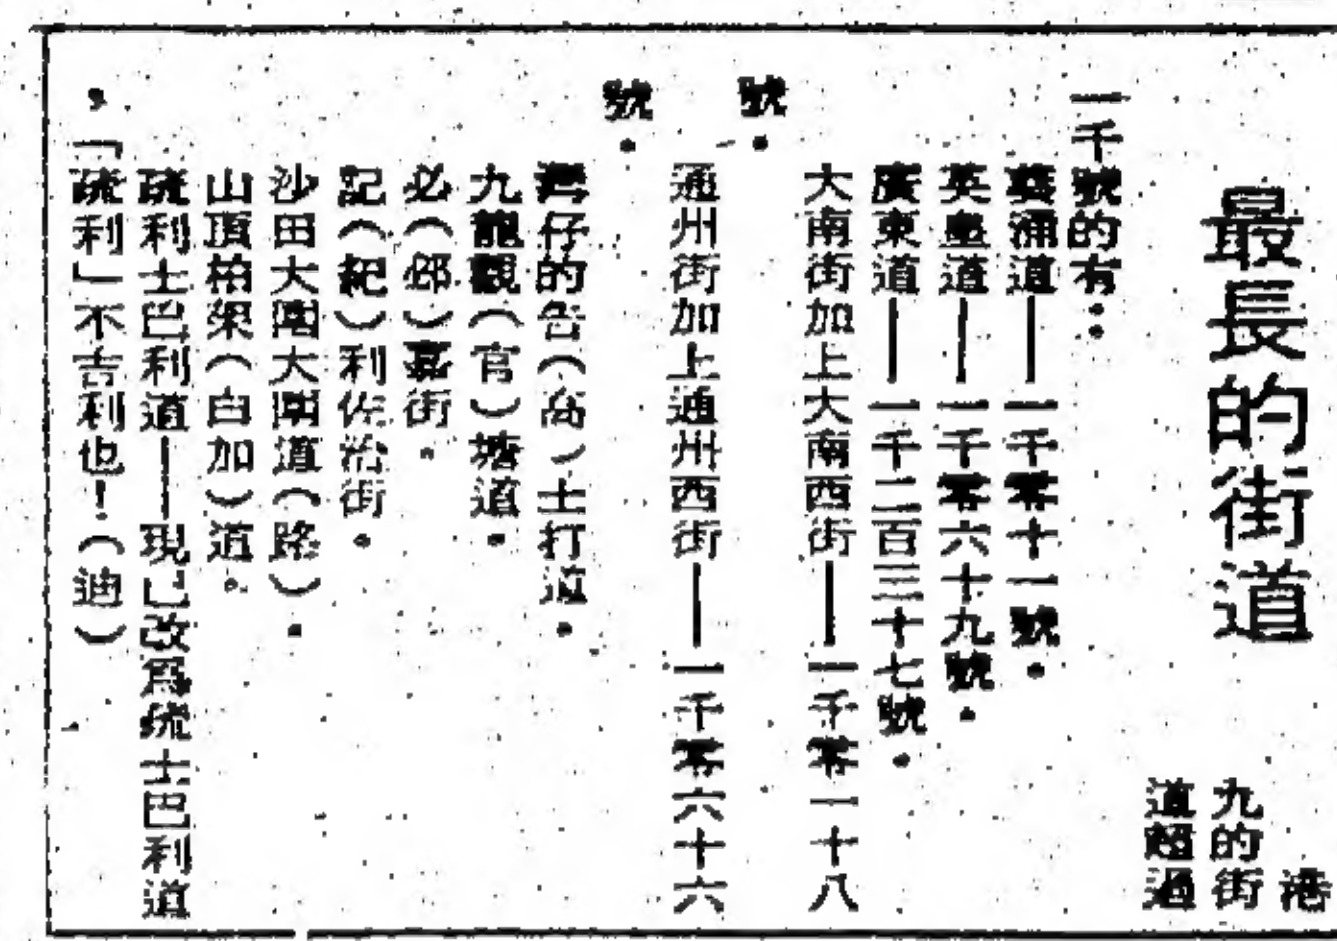 最長的街道
港
九的街
道超過
一千號的有：
葵涌道——一千零十一號。
英皇道——一千零六十九號。
廣東道——一千二百三十七號。
大南街加上大南西街——一千零一十八
號。
通州街加上通州西街——一千零六十六
號。
灣仔的告（高）士打道。
九龍觀（官）塘道。
必（）嘉街。
記（紀）利佐治街。
沙田大圍大圍道（路）。
山頂柏架（白加）道。
疏利士巴利道——現已改爲梳士巴利道
，「疏利」不吉利也！（迪）